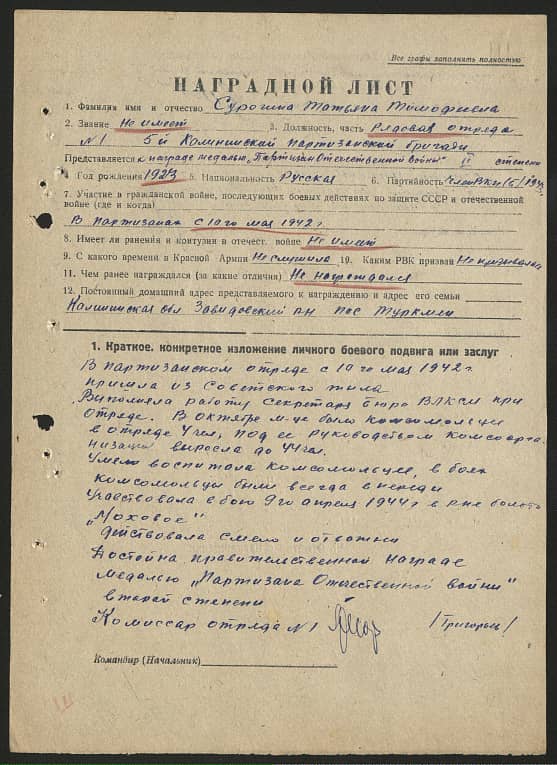 Все графы заполнять полностью
НАГРАДНОЙ ЛИСТ
1. Фамилия имя и отчество Сурогина Татьяна Тимофиевна
2. Звание Не имеет 3. Должность, часть Рядовая отряда
N1 5й Калининской партизанской бригады
Представляется к награде медалью "Партизан Отечественной Войны" II степени
4 Год рождения 1923 5. Национальность Русская 6. Партийность член ВКП/б/
7. Участие в гражданской войне, последующих боевых действиях по защите СССР и отечественной
войне (где и когда)
В партизанах с 10 го мая 1942 г
8. Имеет ли ранения и контузии в отечест. войне Не имеет
9. С какого времени в Красной Армии Не служила 10. Каким РВК призван Не призывалась
11. Чем ранее награждался (за какие отличия) Не награждался
12. Постоянный домашний адрес представляемого к награждению и адрес его семьи
Калининская обл Завидовский р-н пос Туркмен
1. Краткое, конкретное изложение личного боевого подвига или заслуг
В партизанском отряде с 10 го мая 1942 г.
пришла из Советского тыла
Выполняла работу секретаря бюро ВЛКСМ при
отряде. В октябре м-це было комсомольцев
в отряде 4 чел, под ее руководством комсорга
низация выросла до 44 чел.
Умело воспитала комсомольцев, в боях
комсомольцы были всегда впереди
Участвовала в бою 9 го апреля 1944 г в р-не болота
„Моховое"
Действовала смело и отважно
Достойна правительственной награде
медалью „Партизана Отечественной войны"
второй степени
Комиссар отряда N1 /Григорьев/
Командир (Начальник)